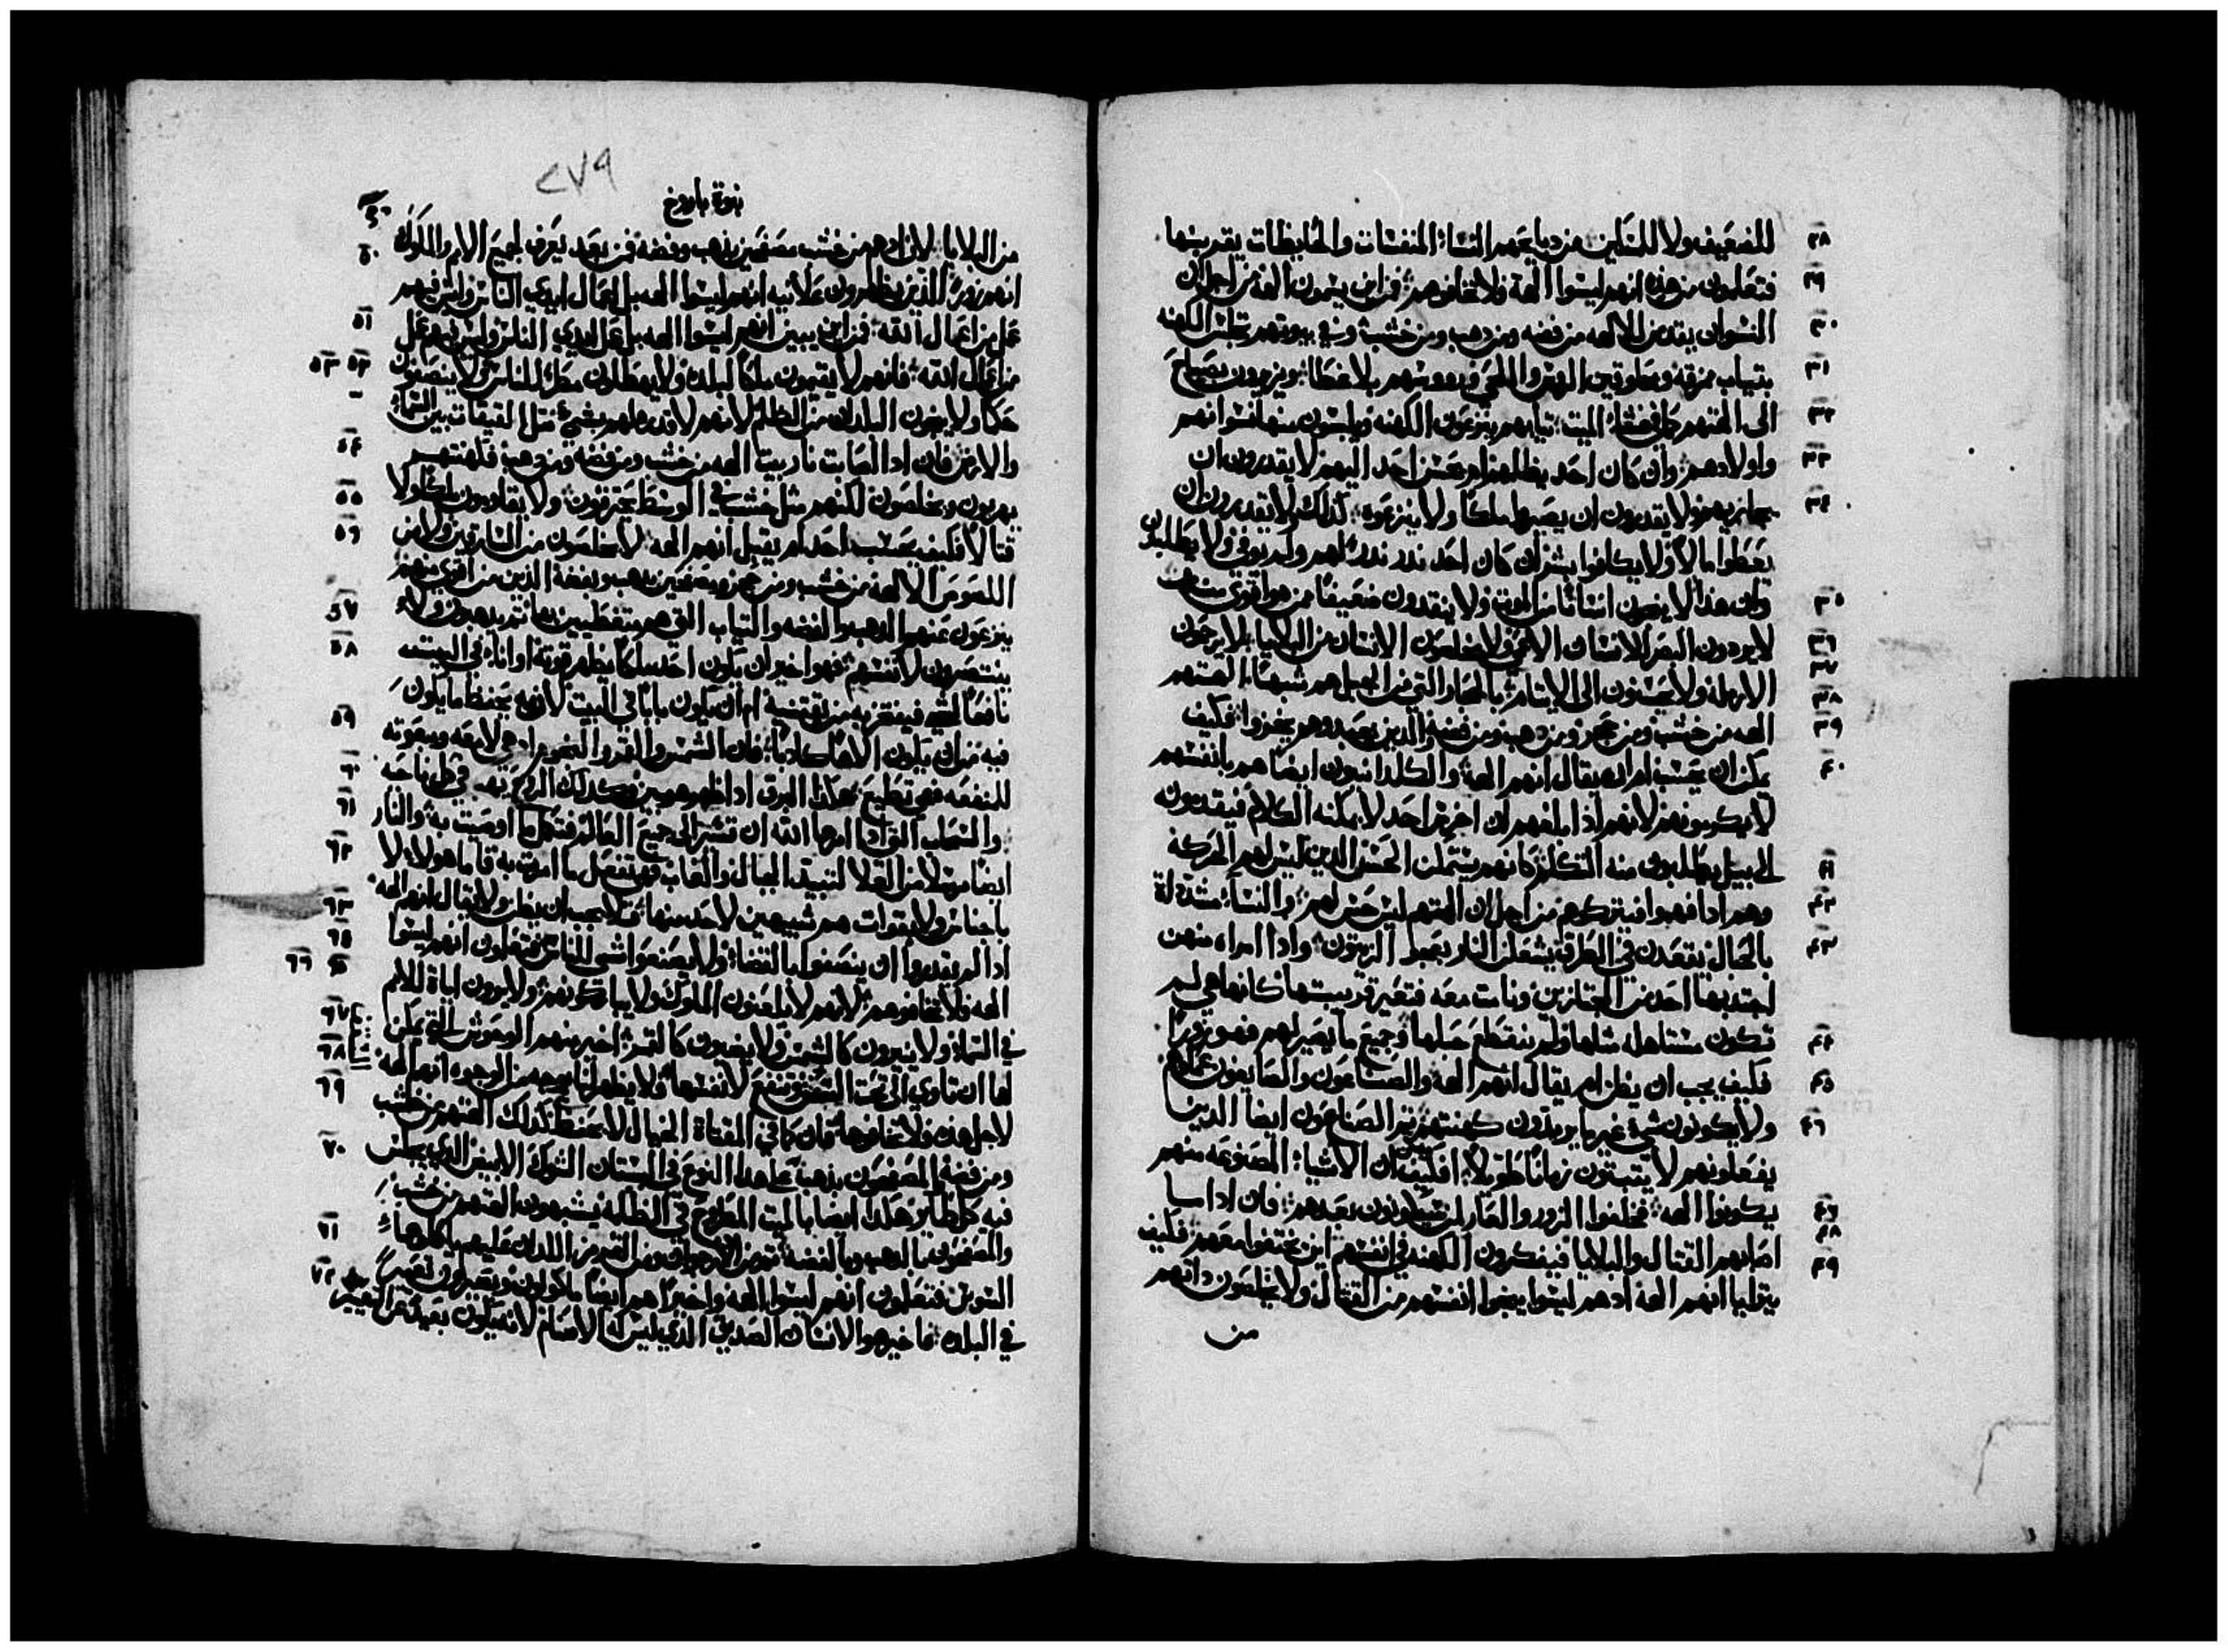 ٢٨ للضعيف ولا للمساكين من دبايحهم النساء المنفسات والحايضات يقربنها
٢٩ فتعلمون من هذه انهم ليسوا الهة فلا تخافوهم فمن اين يسمون الهة من اجل ان
٣٠ النسوان يقدمن للالهه من فضه ومن دهب ومن خشب وفي بيوتهم تجلس الكهنه
٣١ بتياب ممزقه ومحلوقين الروس واللحي وروسهم بلا غطا ويزمرون بصياح
٣٢ الى الهتهم كما في عشاء الميت تيابهم ينزعون الكهنه ويلبسون منها نسوانهم
٣٣ واولادهم وان كان احد يظلمهم او يحسن احد اليهم لا يقدرون ان
٣٤ يجازيهم ولا يقدرون ان يصيروا ملكا ولا ينزعوه كذلك لا يقدرون ان
يعطوا مالا ولا يكافوا بشر ان كان احد ندر ندرا لهم ولم يوفي ولا يطلبون
٣٥ وان هذا لا ينجون انسانا من الموت ولا ينقدون ضعيفا ممن هو اقوى منه
٣٦ لا يردون البصر للانسان الاعمى ولا يخلصون الانسان من البلايا لا يرحمون
٣٧ الارمله ولا يحسنون الى الايتام بالحجاره التي من الجبل هم شبها الهتهم
٣٨ الهه من خشب ومن حجر ومن دهب ومن فضه والدين يعبدوهم يخزوا فكيف
٣٩
٤٠ يمكن ان يحسب او انه يقال انهم الهة والكلدانيون ايضا هم بانفسهم
لا يكرمونهم لانهم اذا بلغهم ان اخرس احد لا يمكنه الكلام فيقدمونه
٤١ الى بيل يطلبون منه التكلم كانهم يتمكن الحس الدين ليس لهم الحركه
٤٢ وهم ادا فهموا فيتركوهم من اجل ان الهتهم ليس حس لهم والنساء مشدده
٤٣ بالحبال يقعدن في الطرق يشعلن النار بعجم الزيتون وادا امراه منهن
اجتدبها احد من المجتازين ونامت معه فتعير قريبتها كانها هي لم
٤٤ تكون مستاهله مثلها ولم ينقطع حبلها وجميع ما يصير لهم فهو زورا
٤٥ فكيف يجب ان يظن او يقال انهم الهة والصناعون والصايغون عملوهم
٤٦ ولا يكونون شي غير ما يريدون كهنتهم والصناعون ايضا الدين
يفعلونهم لا يتبتون زمانا طويلا افكيف ان الاشياء المصنوعه منهم
٤٧ يكونوا الهه فخلفوا الزور والعار لمن سيكونون بعدهم فان ادا ما
٤٨ اصابهم القتال والبلايا فيفكرون الكهنه في انفسهم اين يختفوا معهم فكيف
٤٩ يتوليا انهم الهة ادهم ليسوا ينجوا انفسهم من القتال ولا يخلصون داتهم
من
٢٧٩
نبوة باروخ
من البلايا لان ادهم من خشب مصفحين بذهب وفضه فمن بعد يعرف لجميع الامم والملوك
٥٠ انهم زورا الذين يظهرون علانيه انهم ليسوا الهه بل اعمال ايدي الناس وليس فيهم
٥١ عمل من اعمال الله فمن اين يبين انهم ليسوا الهه بل عمل ايدي الناس وليس فيهم عمل
٥٢ ٥٣ من اعمال الله فانهم لا يقيمون ملكا لبلده ولا يعطون مطرا للناس ولا ينصفون
حكما ولا ينجون البلدان من الظلم لانهم لا قدره لهم بشي مثل القيقان بين السماء
٥٤ والارض فان ادا اصابت نار بيت الهه من خشب ومن فضه ومن دهب فكهنتهم
٥٥ يهربون ويخلصون لكنهم مثل خشب في الوسط يحترقون ولا يقاومون ملكا ولا
٥٦ قتالا فكيف يحسب احد او يقبل انهم الهه لا يخلصون من السارقين ولا من
اللصوص الالهة من خشب ومن حجر ومصفحين بدهب وبفضة الدين من اقوى منهم
٥٧ ينزعون عنهم الدهب والفضه والتياب التي هم متغطيين بها ثم يذهبون ولا
٥٨ ينتصرون لانفسهم فهو اخير ان يكون احد ملكا يظهر قوته او اناء في البيت
نافعا لشي فيفتخر به من يقتنيه او ان يكون بابا في البيت لانه يحفظ ما يكون
٥٩ فيه من ان يكون الاها كادبا فان الشمس والقمر والنجوم ادهي لامعه ومبعوته
٦٠ للمنفعه فهي تطيع هكذا البرق اذا ظهر هو بين وكذلك الريح تهب في كل ناحيه
٦١ والسحاب التي ادا امرها الله ان تسير الى جميع العالم فتكمل ما اوصيت به والنار
٦٢ ايضا مرسلا من العلا لتبيد الجبال والغاب فهي تفعل ما امرت به فاما هولاء لا
٦٣ باجناس ولا بقوات هم شبيهين لاحد منها فلا يجب ان يظن ولا يقال انهم الهه
٦٤ ادا لم يقدروا ان ينصفوا بالقضاء ولا يصنعوا شي للناس فتعلمون انهم ليسوا
٦٥ ٦٦ الهه فلا تخافوهم لانهم لا يلعنون الملوك ولا يباركونهم ولا يرون اياة للامم
٦٧ في السماء ولا ينيرون كالشمس ولا يضيون كالقمر اخير منهم الوحوش التي يمكن
٦٨ لها ان تاوي الى تحت السقف وتنفع لانفسها ولا يظهر لنا بوجه من الوجوه انهم الهة
٦٩ لاجل هذه فلا تخافوها فان كما في المقتاة الخيال لا يحفظ كذلك الهتهم من خشب
٧٠ ومن فضة المصفحون بدهب على هذا النوع في البستان الشوك الابيض الدي يجلس
فيه كل طاير هكذا ايضا بالميت المطروح في الظلمه يشبهون الهتهم من خشب
٧١ والمصفحون بالدهب وبالفضه ومن الارجوان ومن القرمز اللدان عليهم ياكلوها
٧٢ السوس فتعلمون انهم ليسوا الهه واخيرا هم ايضا ماكولون ويصيرون تعييرا
في البلده فاخير هو الانسان الصديق الدي ليس له الاصنام لانه يكون بعيدا عن التعيير